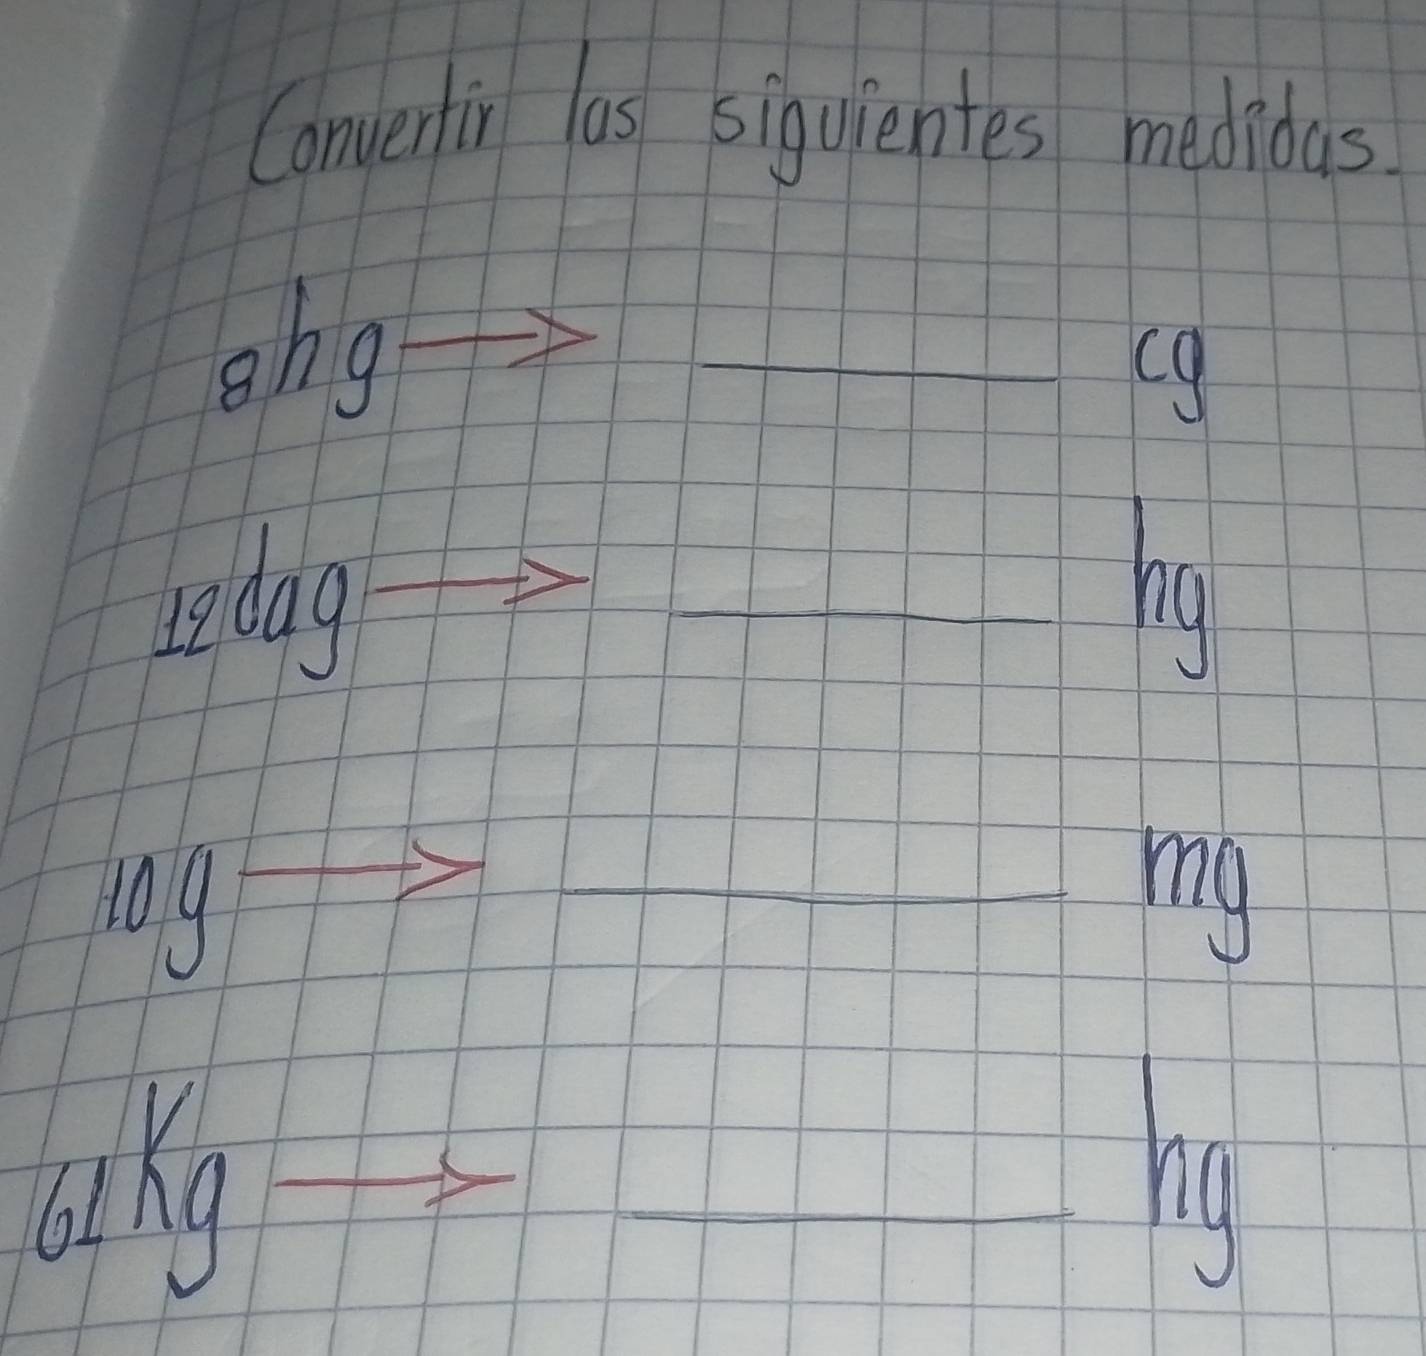 Convertir las siguientes medidas.
8hg → ________ cg
12dag → ________ hg
10g → ________ mg
61Kg → ________ hg